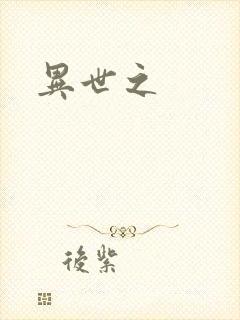 異世之
後紫